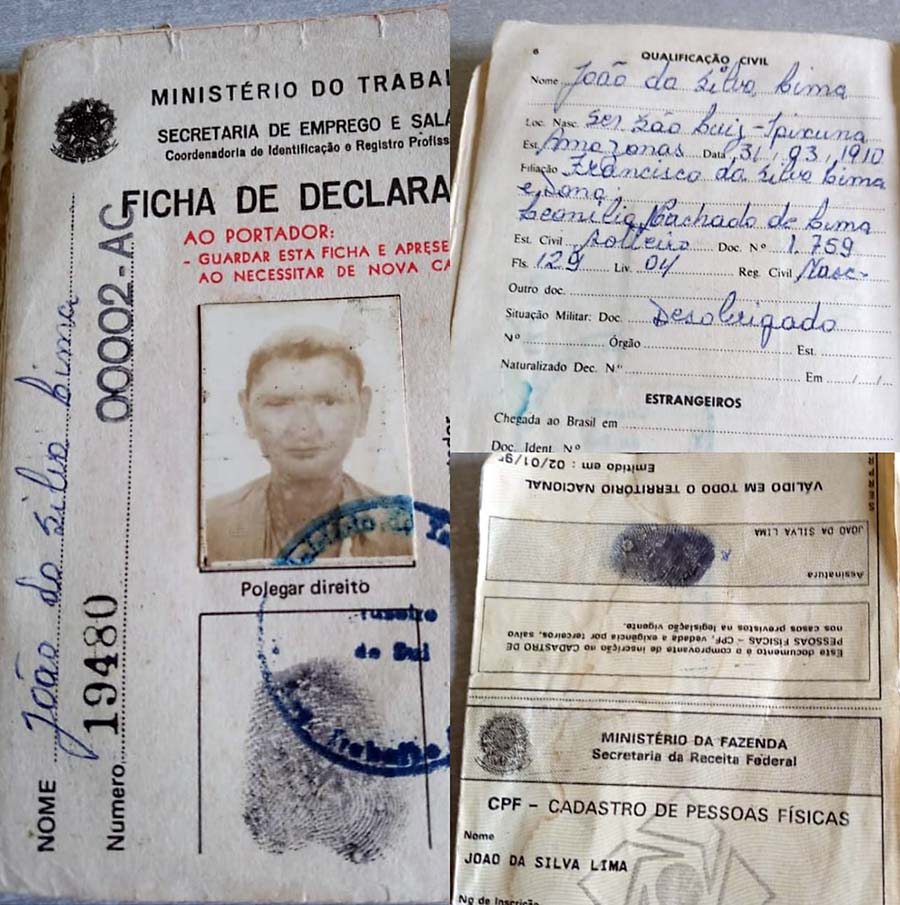 MINISTÉRIO DO TRABA
SECRETARIA DE EMPREGO E SALA
Coordenadoria de Identificação e Registro Profiss
FICHA DE DECLARA
AO PORTADOR:
- GUARDAR ESTA FICHA E APRESE
AO NECESSITAR DE NOVA CA
Polegar direito
Cruzeiro
do Sul
NOME João da Silva Lima
Numero 19480 00002-AC
6
QUALIFICAÇÃO CIVIL
Nome João da Silva Lima
Loc. Nasc. Ser São Luiz - Ipixuna
Est. Amazonas Data 31/03/1910
Filiação Francisco da Silva Lima
e Dona:
Leonilia Machado de Lima
Est. Civil Solteiro Doc. Nº 1.759
Fls. 129 Liv. 04 Reg. Civil Nasc-
Outro doc.
Situação Militar: Doc. Desobrigado
Nº Órgão Est.
Naturalizado Dec. Nº Em / /
ESTRANGEIROS
Chegada ao Brasil em
Doc. Ident. Nº
Emitido em : 02/01/9
VÁLIDO EM TODO O TERRITÓRIO NACIONAL
JOAO DA SILVA LIMA
Assinatura
Este documento é o comprovante de inscrição no CADASTRO DE
PESSOAS FÍSICAS - CPF, vedada a exigência por terceiros, salvo
nos casos previstos na legislação vigente.
MINISTÉRIO DA FAZENDA
Secretaria da Receita Federal
CPF - CADASTRO DE PESSOAS FÍSICAS
Nome
JOAO DA SILVA LIMA
Nº de Inscrição